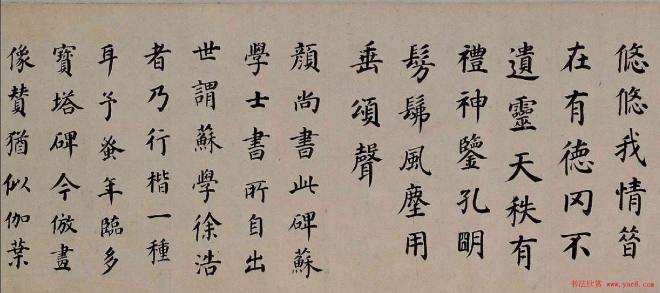 悠悠我情昝
在有德罔不
遺靈天秩有
禮神鑒孔明
髣髴風塵用
垂頌聲
顏尚書此碑蘇
學士書所自出
世謂蘇學徐浩
者乃行楷一種
耳予蚤年臨多
寶塔碑今倣畫
像贊猶似伽葉
书法欣赏 www.yac8.com